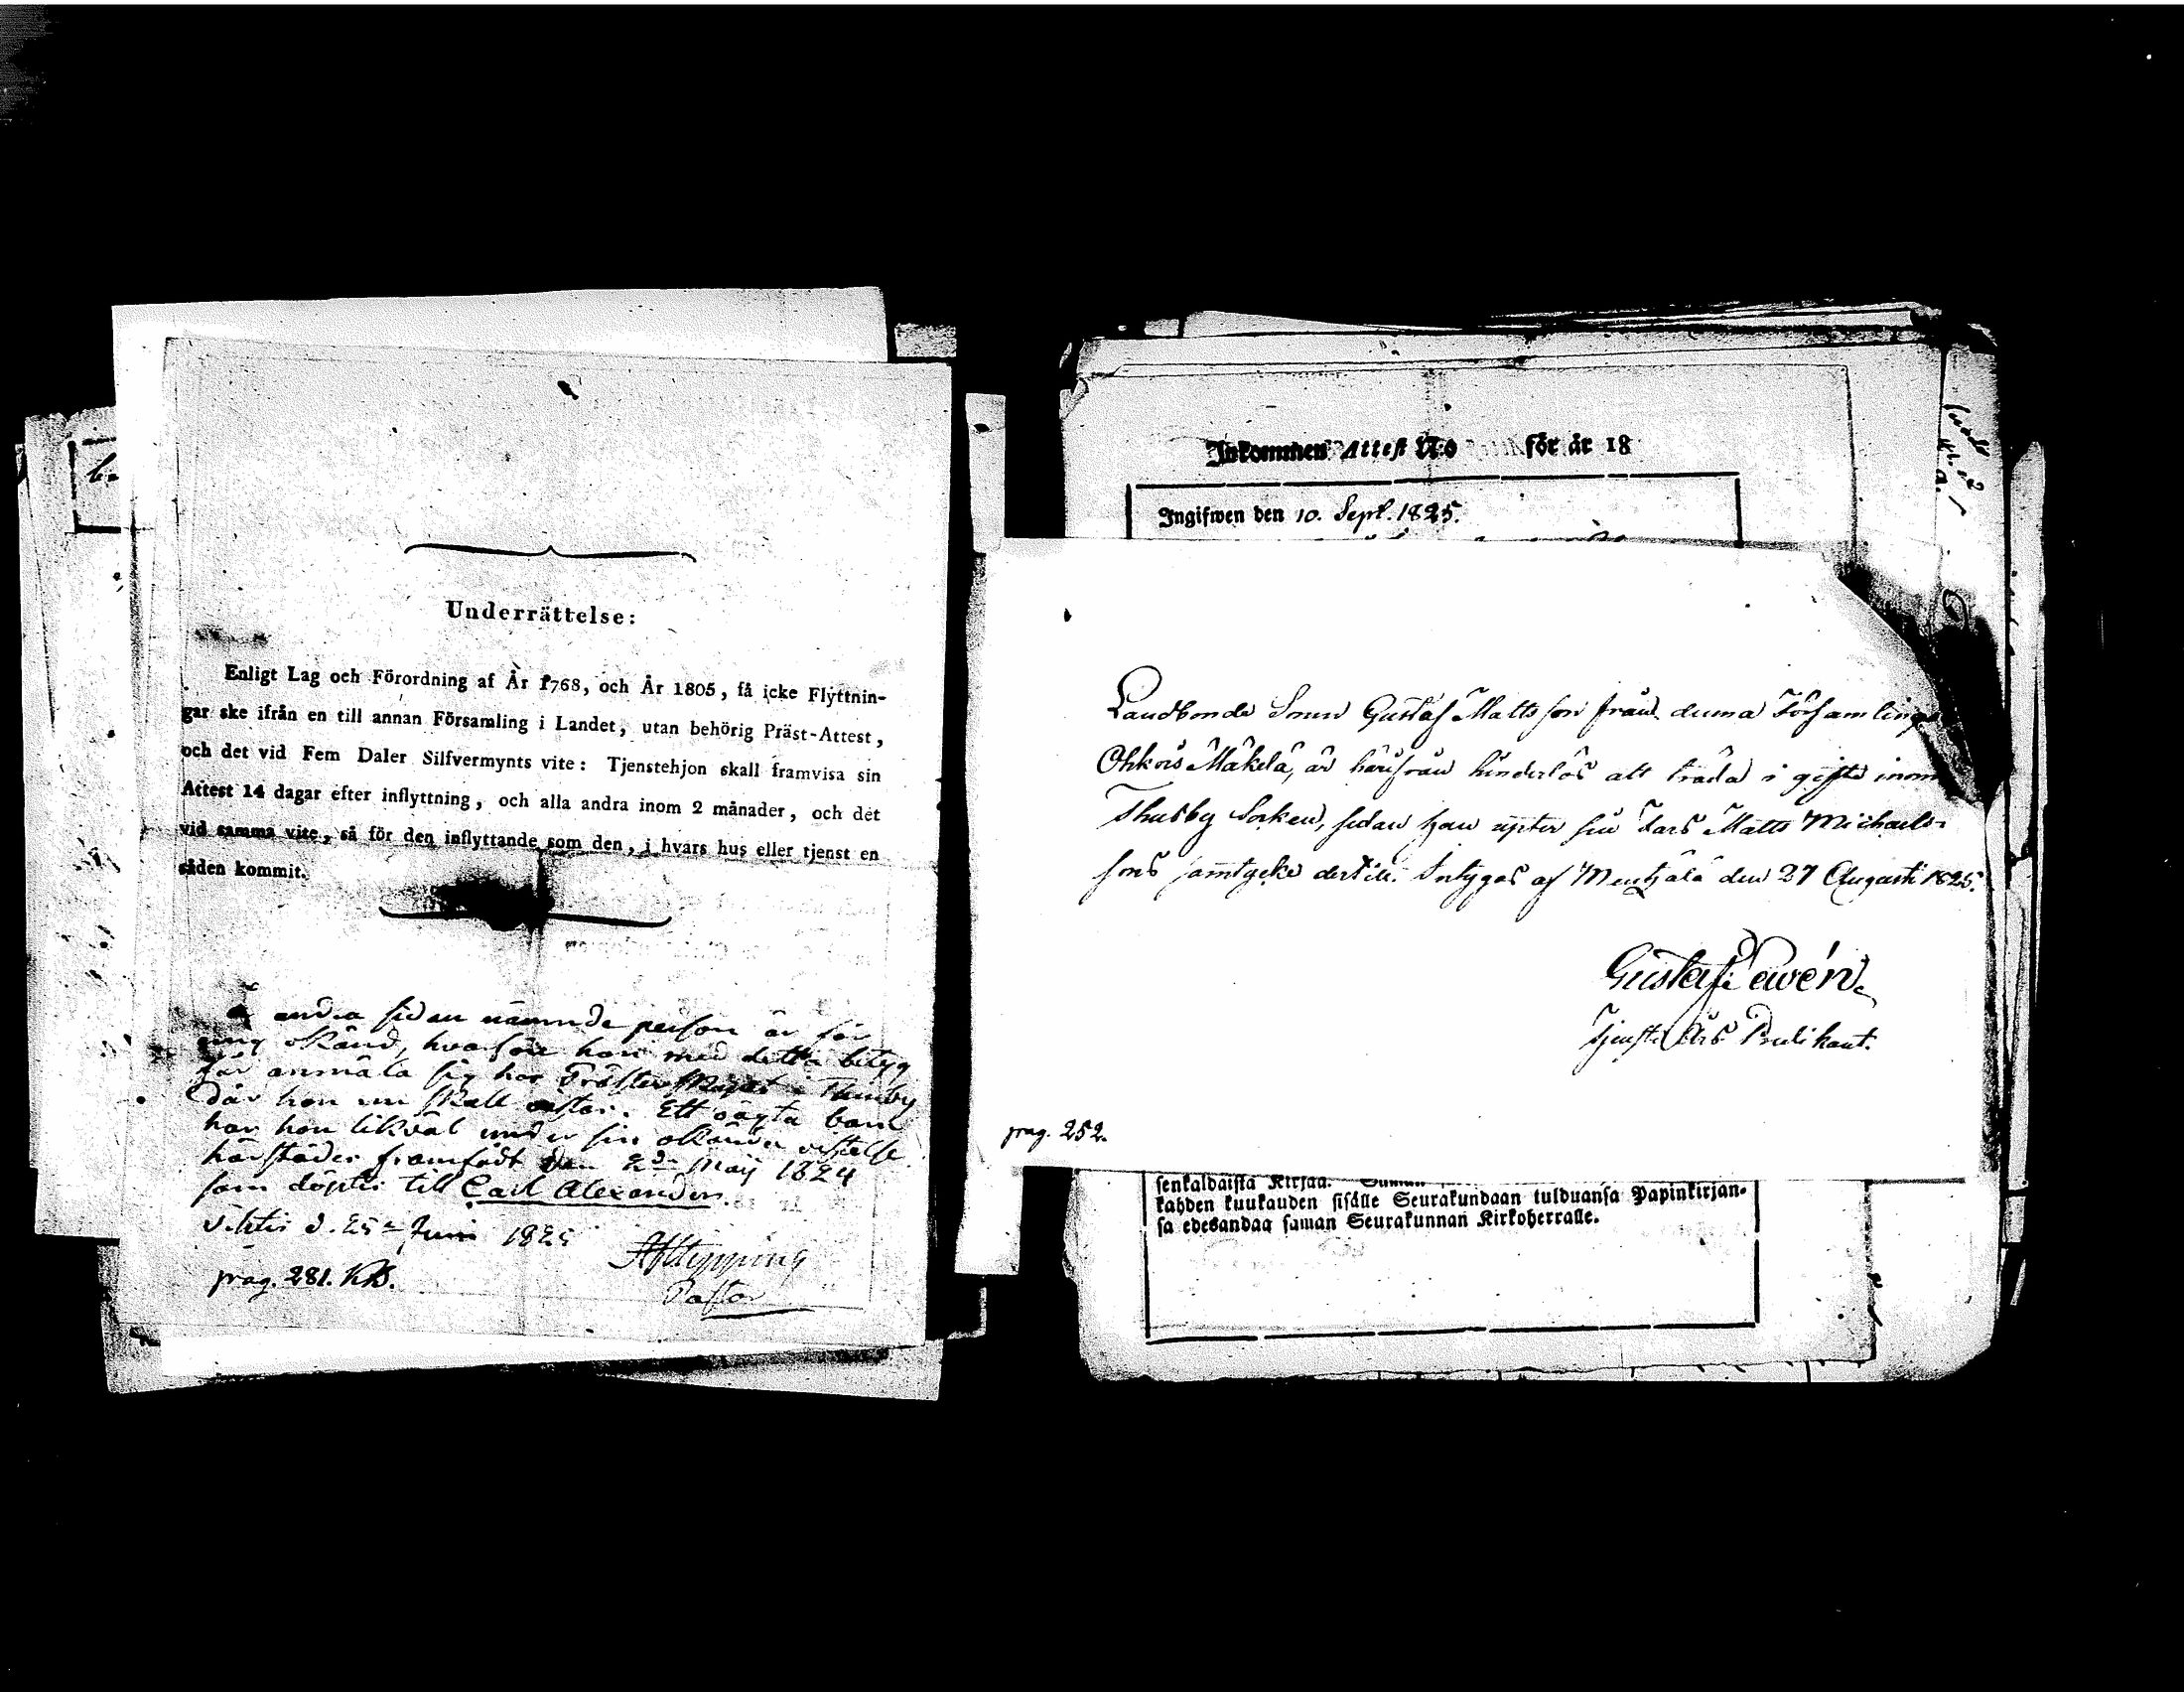 Underrättelse:
Enligt Lag och Förordning af År 1768, och År 1805, få icke Flyttnin-
gar ske ifrån en till annan Församling i Landet, utan behörig Präst-Attest,
och det vid Fem Daler Silfvermynts vite: Tjenstehjon skall framvisa sin
Attest 14 dagar efter inflyttning, och alla andra inom 2 månader, och det
vid samma vite, så för den inflyttande som den, i hvars hus eller tjenst en
såden kommit.
å andra sidan nämnde person är för
mig okänd, hvarföre hon med detta betyg
får anmäla sig hos Prästerskapet i Thusby
där hon nu skall vistas. Ett oägta barn
har hon likväl under sin okända vistelse
härstädes framfödt den 2dn Maij 1824
som döptes till Carl Alexander.
Vihtis d. 25 Juni 1825
Pastor
pag. 281. KB.
Inkommen Attest N:o för år 18
Ingifwen den 10. Sept. 1825.
Landbonde Sonen Gustaf Mattsson från denna Församlings
Ohkois Mäkelä, är härifrån hinderlös att träda i gifte inom
Thusby Socken, sedan han upter sin Fars Matts Michaels-
sons samtycke dertill. Intygas af Mentzälä den 27 Augusti 1825.
Gustaf
Tjenst. Års Predikant.
pag. 252.
senkaldaista Kirjaa.
kahden kuukauden sisälle Seurakundaan tulduansa Papinkirjan-
sa edesandaa saman Seurakunnan Kirkoherralle.